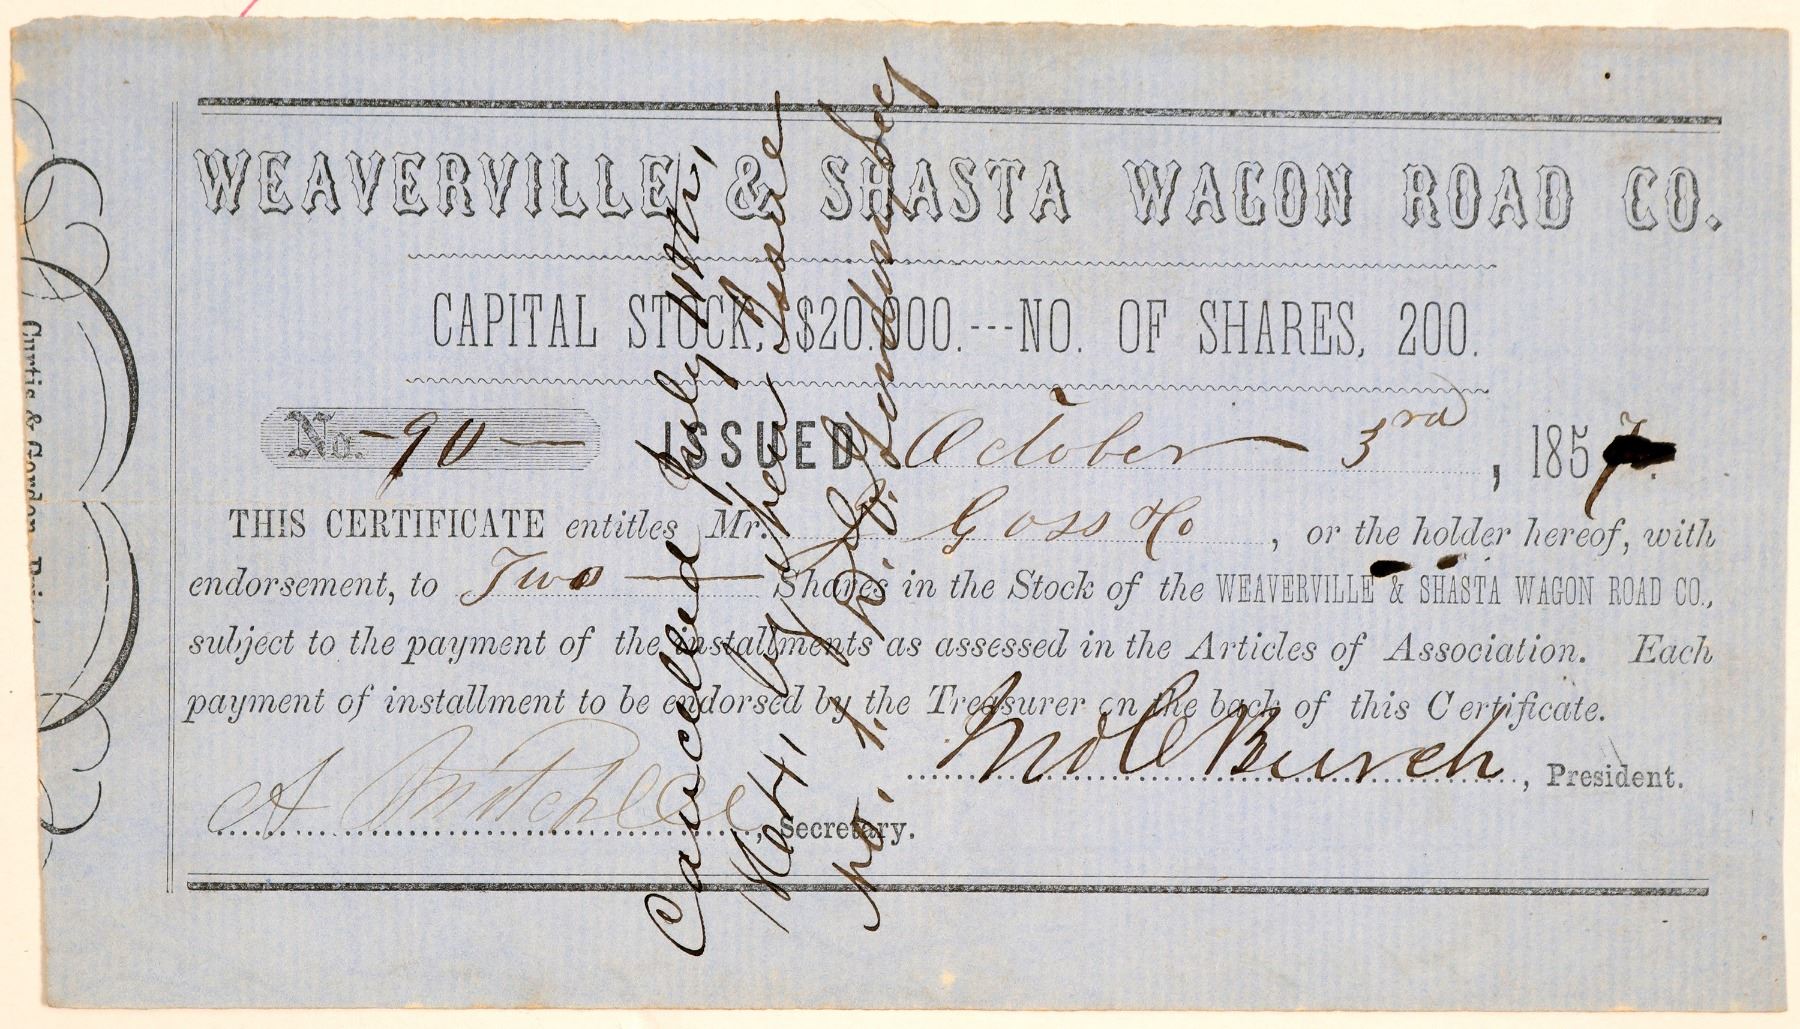 WEAVERVILLE & SHASTA WAGON ROAD CO.
CAPITAL STOCK, $20.000.---NO. OF SHARES, 200.
No. - 90 — ISSUED October 3rd, 1857.
THIS CERTIFICATE entitles Mr. Goss & Co, or the holder hereof, with
endorsement, to Two Shares in the Stock of the WEAVERVILLE & SHASTA WAGON ROAD CO.,
subject to the payment of the installments as assessed in the Articles of Association. Each
payment of installment to be endorsed by the Treasurer on the back of this Certificate.
Burch, President.
A Mitchell, Secretary.
Cancelled July
by when Issue
No. 1.
Curtis & Gordon